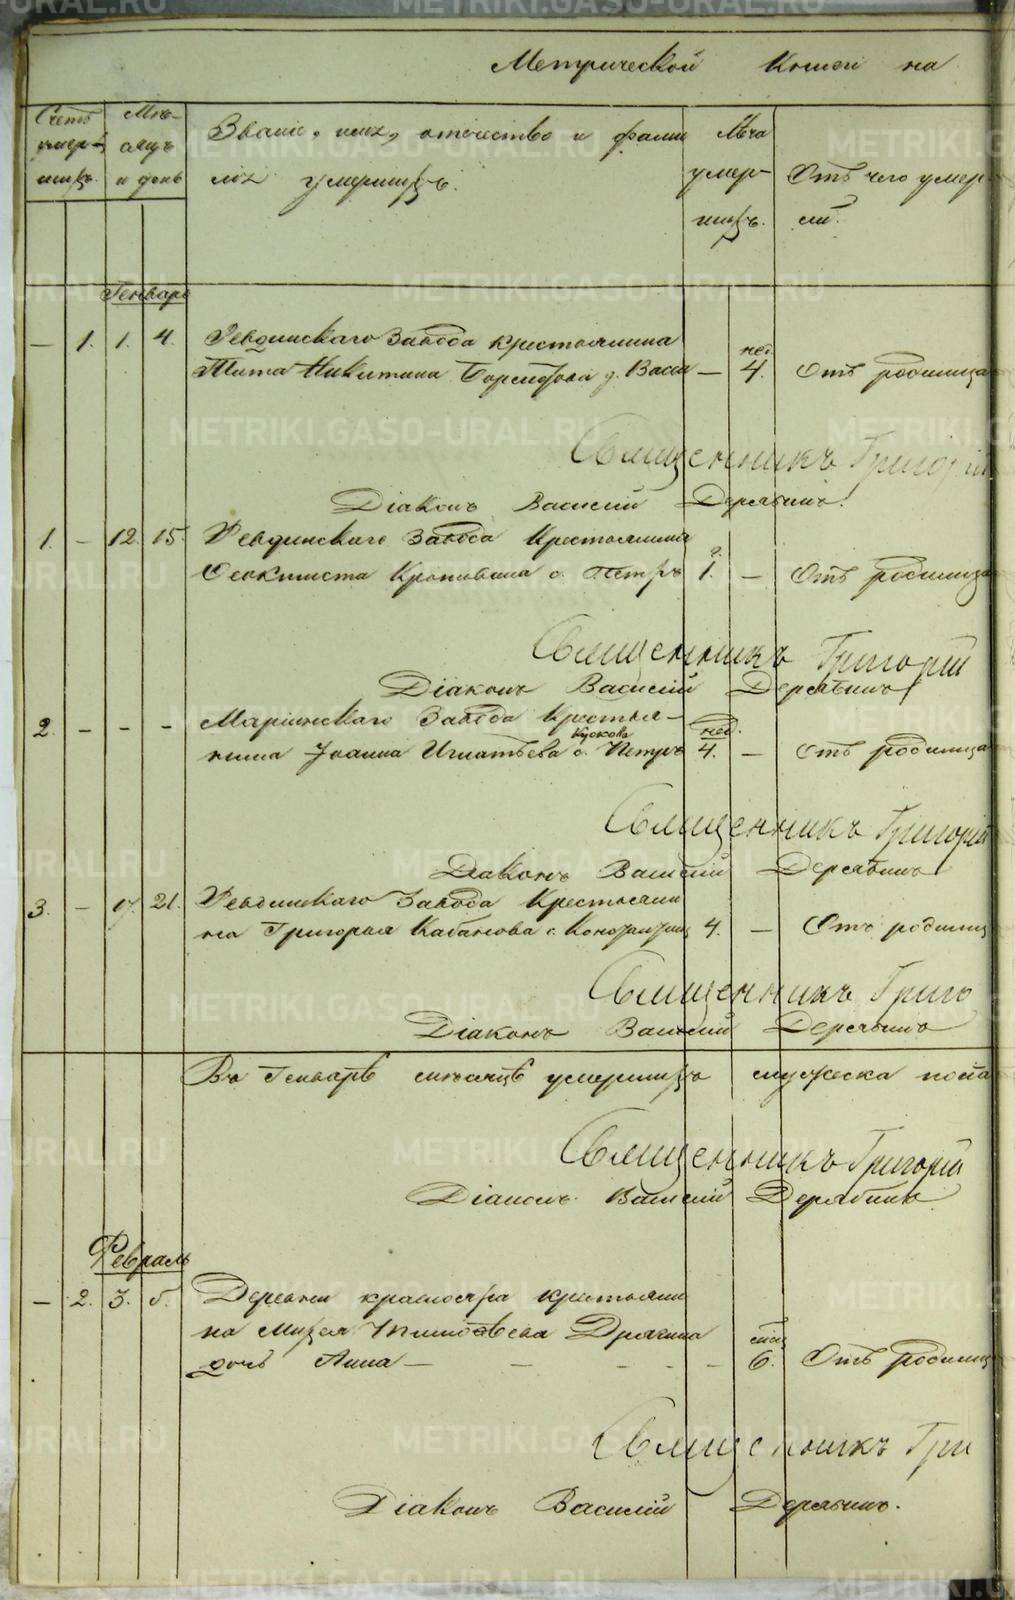 Метрической Книги на
Счетъ умер- шихъ.
Мѣ- сяцъ и день
Званіе, имя, отечество и фами
лія умершихъ.
Лѣта умер- шихъ.
Отъ чего умер-
ли.
Генварь
— 1. 1. 4. Ревдинскаго Завода крестьянина
нед.
Тита Никитина д. Васи — 4. Отъ родимца
Священникъ Григорій
Діаконъ Василій Дерябинъ.
1. — 12. 15. Ревдинскаго Завода Крестьянина
г.
Феоктиста Кропивина с. Петръ 1. — Отъ родимца
Священникъ Григорій
Діаконъ Василій Дерябинъ
2. — — — Маріинскаго Завода Крестья-
Кускова нед.
нина Іоанна Игнатьева с. Петръ 4. — Отъ родимца
Священникъ Григорій
Діаконъ Василій Дерябинъ
3. — 17. 21. Ревдинскаго Завода Крестьяни
на Григорья Кабанова с. 4. — Отъ родимц
Священникъ Григо
Діаконъ Василій Дерябинъ
Въ Генварѣ мѣсяцѣ умершихъ мужеска пола
Священникъ Григорій
Діаконъ Василій Дерябинъ
Февраль
— 2. 3. 5. Деревни краснояра крестьяни
на Дрягина мѣс
дочь Анна — — — — — 6. Отъ родимц
Священникъ Гри
Діаконъ Василій Дерябинъ.
METRIKI.GASO-URAL.RU